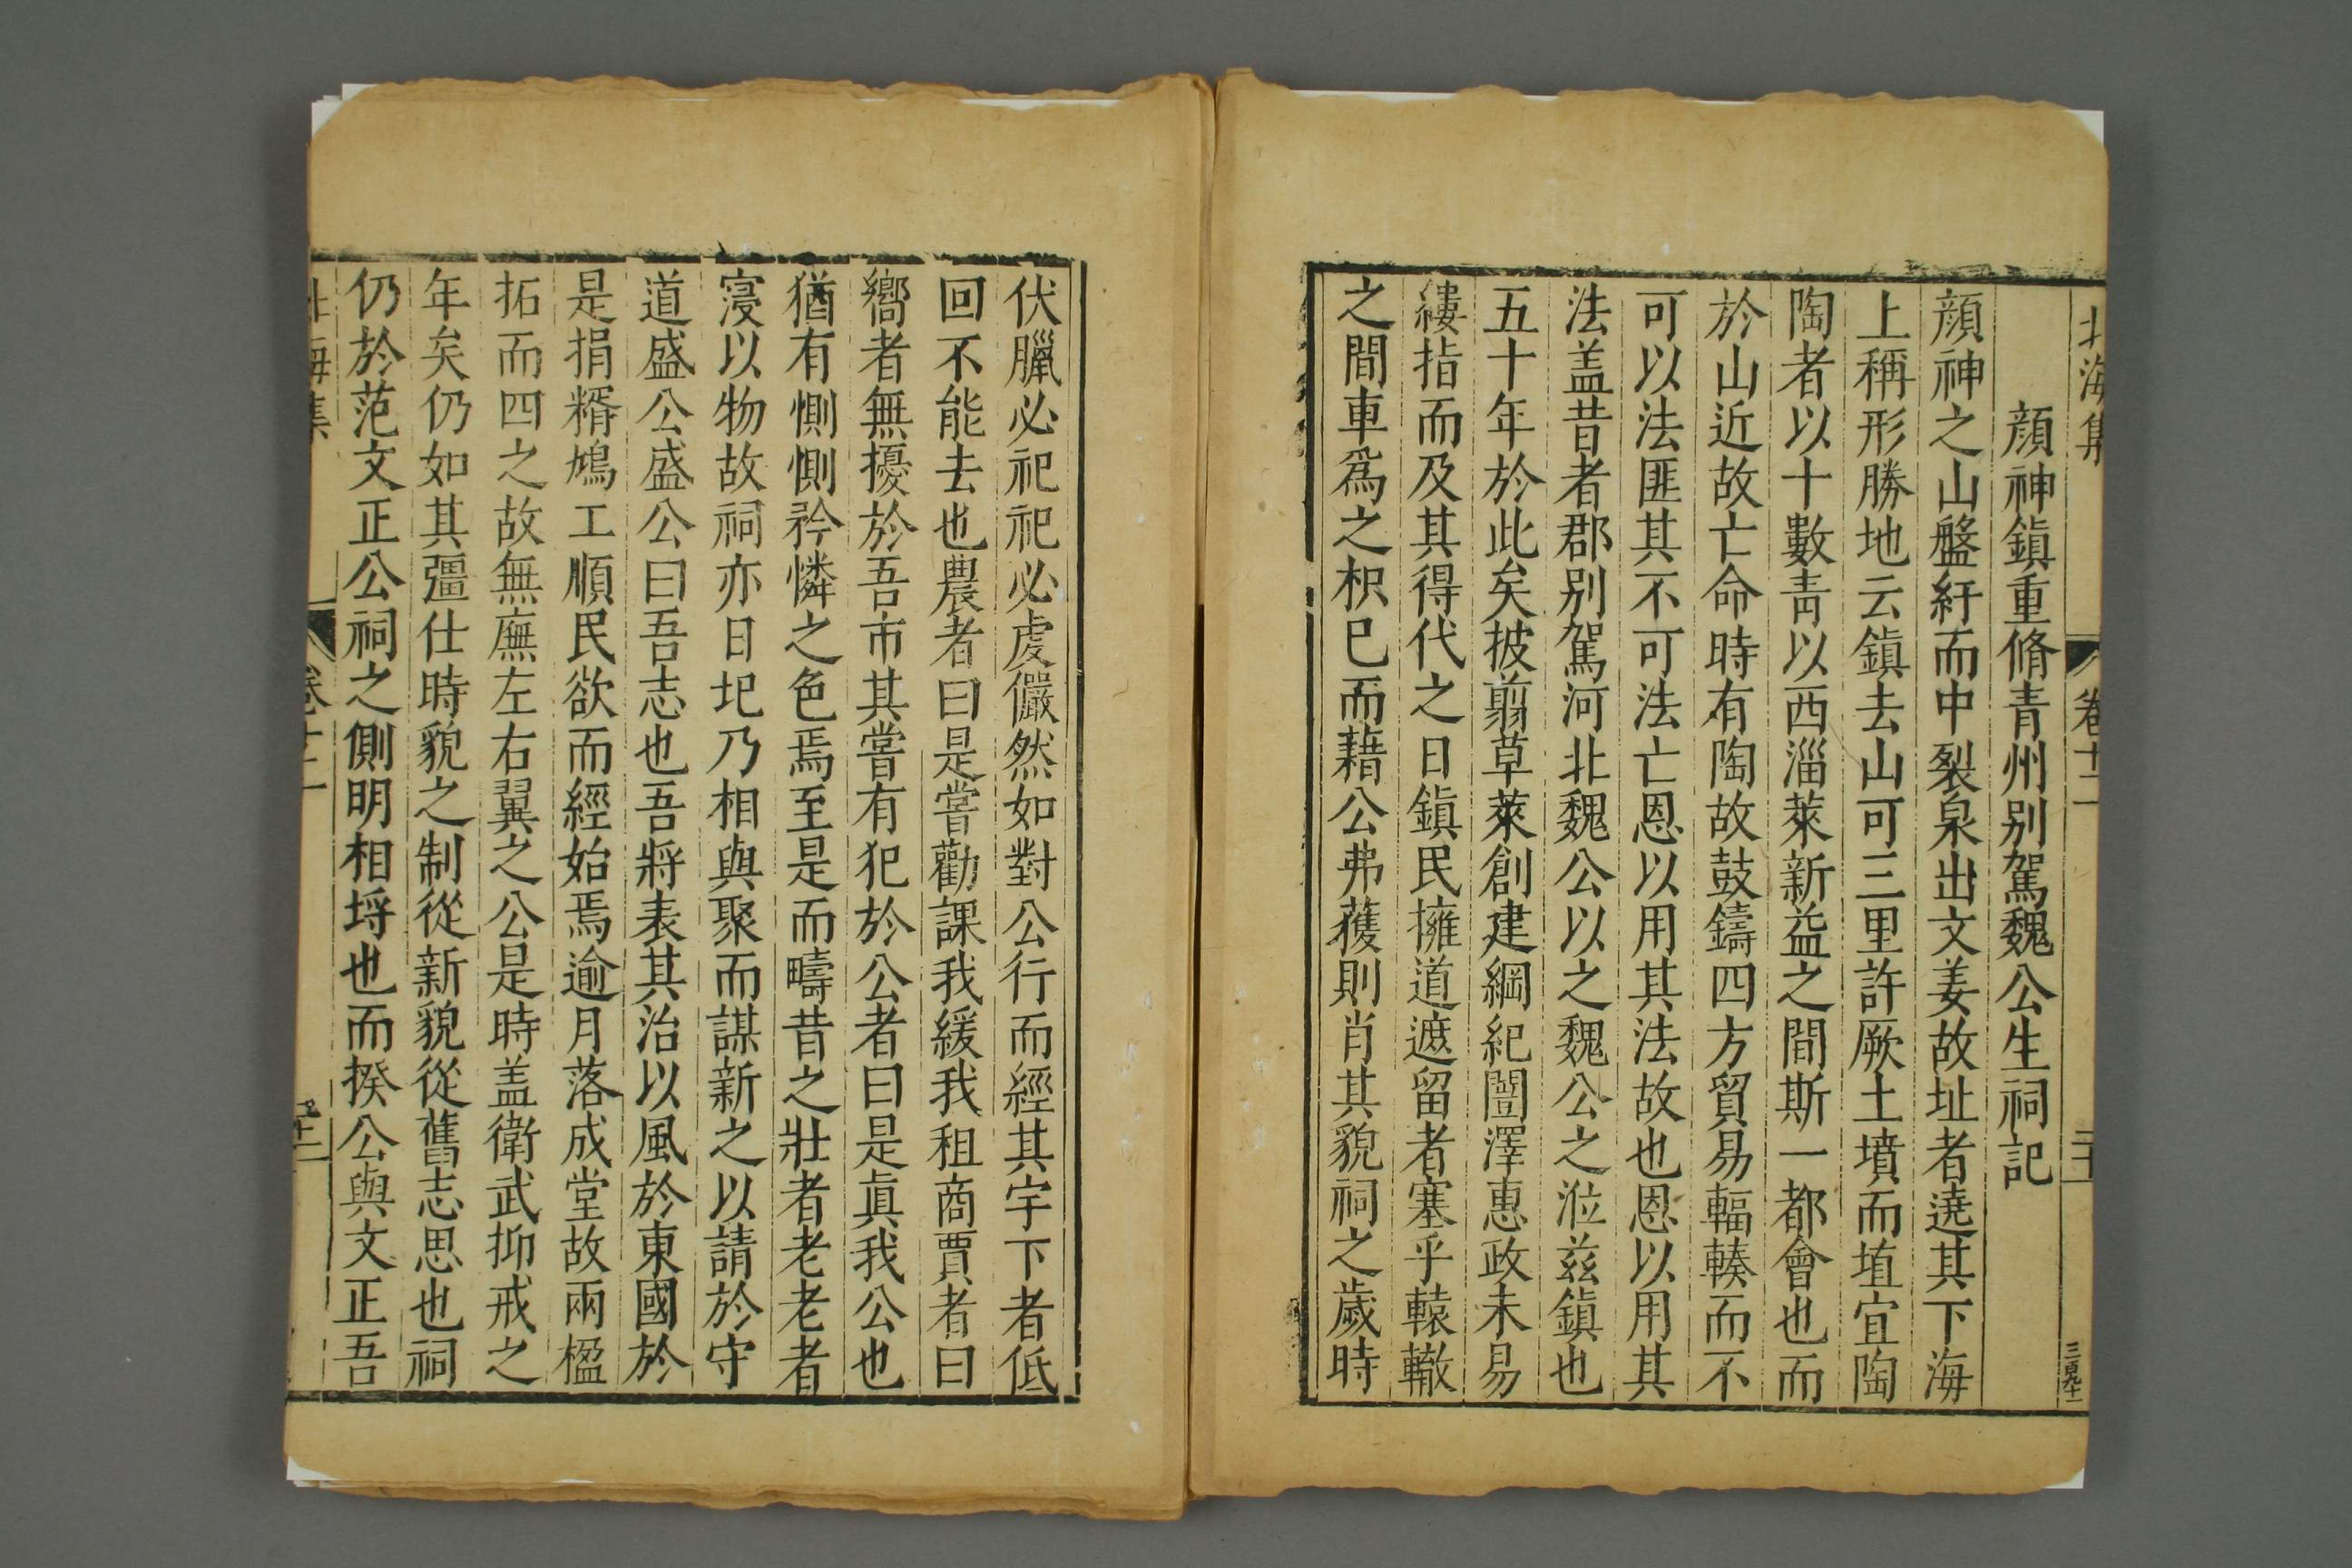 北海集 卷十二 二十 三百九十一
顏神鎮重脩青州别駕魏公生祠記
顏神之山盤紆而中裂泉出文姜故址者遶其下海
上稱形勝地云鎮去山可三里許厥土墳而埴宜陶
陶者以十數青以西淄萊新益之間斯一都會也而
於山近故亡命時有陶故鼓鑄四方貿易輻輳而不
可以法匪其不可法亡恩以用其法故也恩以用其
法盖昔者郡别駕河北魏公以之魏公之涖兹鎮也
五十年於此矣披翦草萊創建綱紀闓澤惠政未易
縷指而及其得代之日鎮民擁道遮留者塞乎轅轍
之間車爲之枳已而藉公弗獲則肖其貌祠之歲時
伏臘必祀祀必虔儼然如對公行而經其宇下者低
回不能去也農者曰是嘗勸課我緩我租商賈者曰
嚮者無擾於吾市其嘗有犯於公者曰是眞我公也
猶有惻惻矜憐之色焉至是而疇昔之壯者老老者
寖以物故祠亦日圮乃相與聚而謀新之以請於守
道盛公盛公曰吾志也吾將表其治以風於東國於
是捐糈鳩工順民欲而經始焉逾月落成堂故兩楹
拓而四之故無廡左右翼之公是時盖衛武抑戒之
年矣仍如其彊仕時貌之制從新貌從舊志思也祠
仍於范文正公祠之側明相埒也而揆公與文正吾
北海集 卷十二